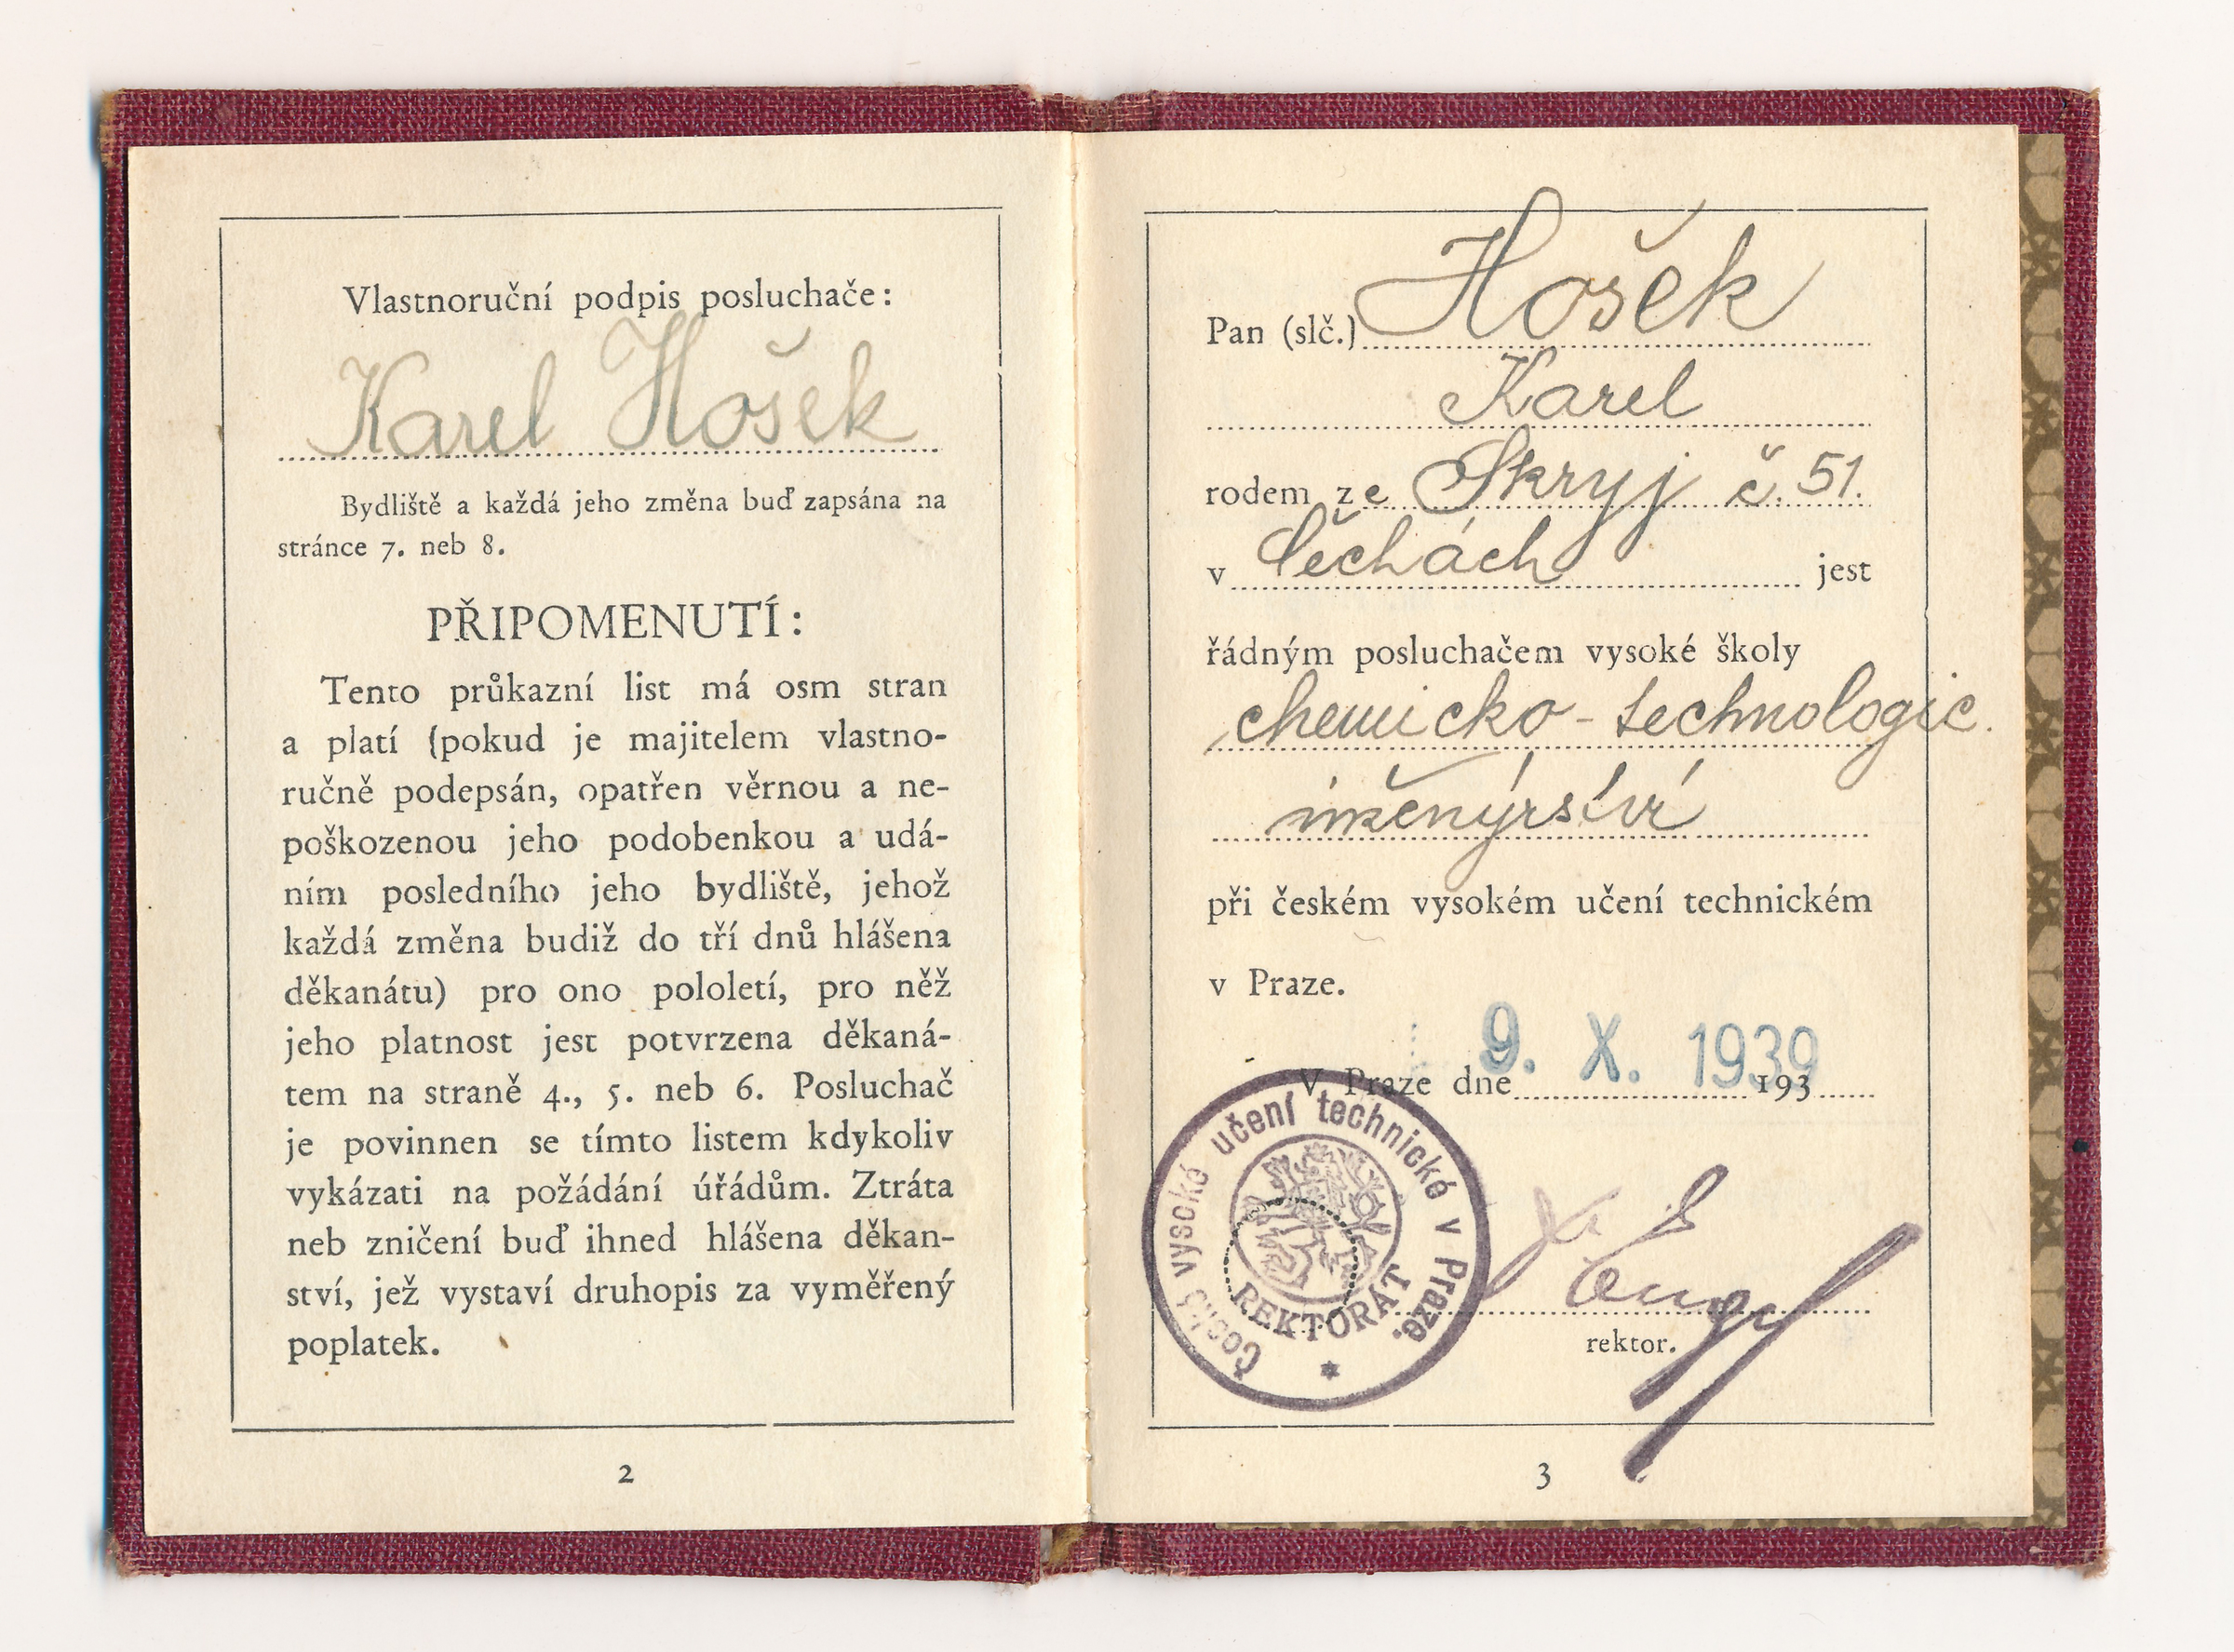 Vlastnoruční podpis posluchače:
Karel Hošek
Bydliště a každá jeho změna buď zapsána na
stránce 7. neb 8.
PŘIPOMENUTÍ:
Tento průkazní list má osm stran
a platí (pokud je majitelem vlastno-
ručně podepsán, opatřen věrnou a ne-
poškozenou jeho podobenkou a udá-
ním posledního jeho bydliště, jehož
každá změna budiž do tří dnů hlášena
děkanátu) pro ono pololetí, pro něž
jeho platnost jest potvrzena děkaná-
tem na straně 4., 5. neb 6. Posluchač
je povinnen se tímto listem kdykoliv
vykázati na požádání úřádům. Ztráta
neb zničení buď ihned hlášena děkan-
ství, jež vystaví druhopis za vyměřený
poplatek.
2
Pan (slč.) Hošek
Karel
rodem ze Skryj č. 51.
v Čechách jest
řádným posluchačem vysoké školy
chemicko-technologic.
inženýrství
při českém vysokém učení technickém
v Praze.
9. X. 1939
V Praze dne 193
České vysoké učení technické v Praze.
REKTORÁT
Engel
rektor.
3